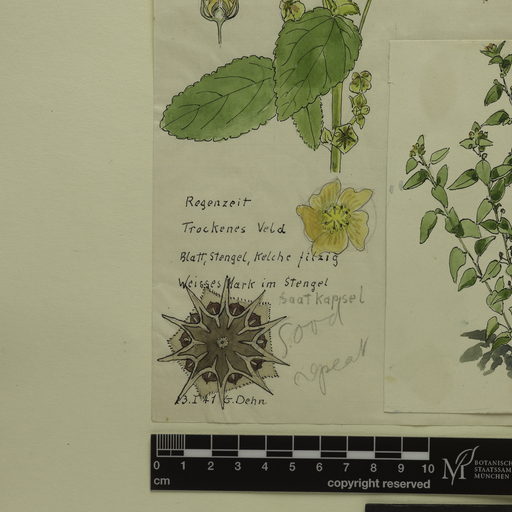 Regenzeit
Trockenes Veld
Blatt, Stengel, Kelche filzig
Weisses Mark im Stengel
Saatkapsel
Good
repeat
23.I.41 G. Dehn
0 1 2 3 4 5 6 7 8 9 10
cm
copyright reserved
BOTANISCH
STAATSSAM
MÜNCHEN